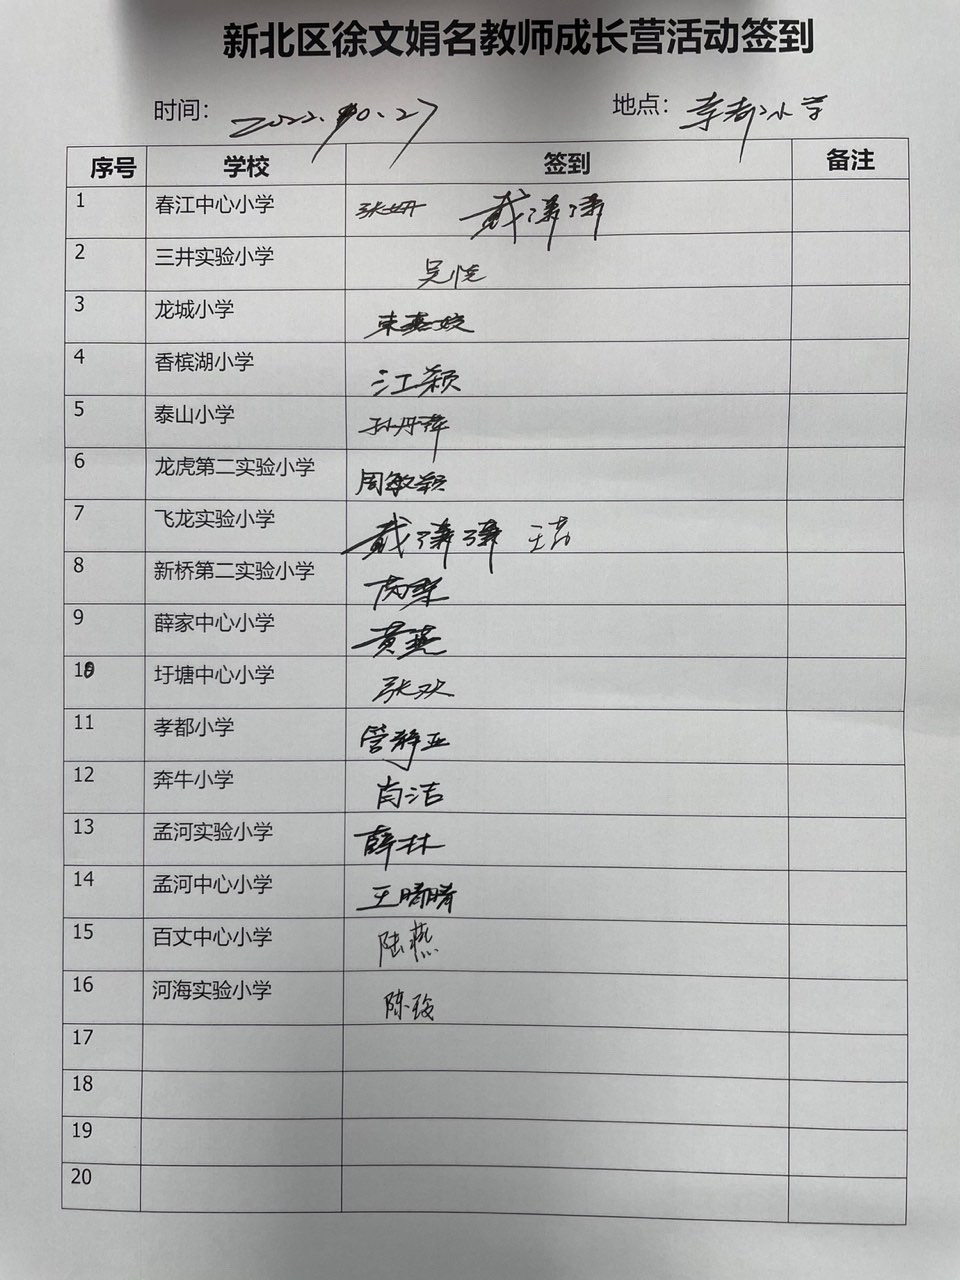 新北区徐文娟名教师成长营活动签到
时间： 2022.10.27 地点： 孝都小学
序号 学校 签到 备注
1 春江中心小学 张妍 戴
2 三井实验小学 吴悦
3 龙城小学 束嘉姣
4 香槟湖小学 江颖
5 泰山小学 孙丹萍
6 龙虎第二实验小学 周敏颖
7 飞龙实验小学 戴
8 新桥第二实验小学
9 薛家中心小学 黄燕
10 圩塘中心小学 张欢
11 孝都小学 管静亚
12 奔牛小学 肖洁
13 孟河实验小学 薛林
14 孟河中心小学 王晴晴
15 百丈中心小学 陆燕
16 河海实验小学 陈
17
18
19
20